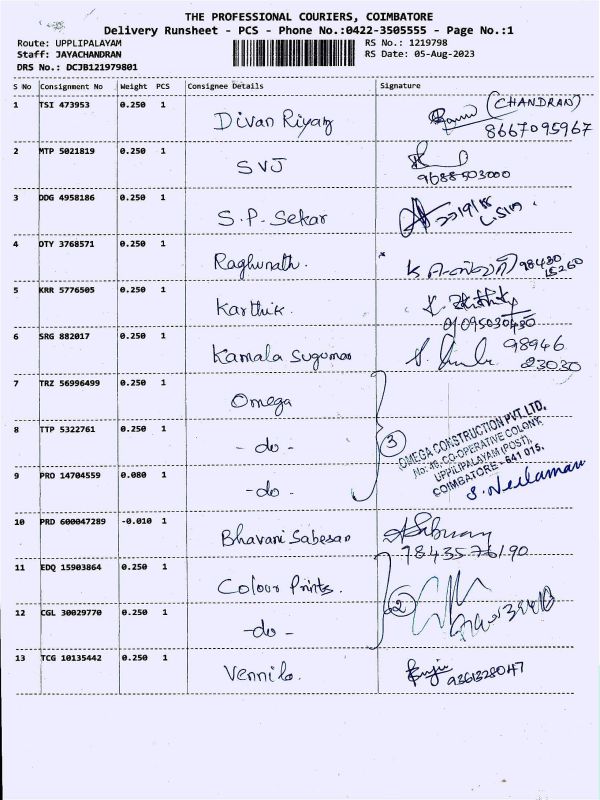 THE PROFESSIONAL COURIERS, COIMBATORE
Delivery Runsheet - PCS - Phone No.:0422-3505555 - Page No.:1
Route: UPPLIPALAYAM
Staff: JAYACHANDRAN
DRS No.: DCJB121979801
RS No.: 1219798
RS Date: 05-Aug-2023
S No Consignment No Weight PCS Consignee Details Signature
1 TSI 473953 0.250 1 Divan Riyaz (CHANDRAN)
8667095967
2 MTP 5021819 0.250 1 SVJ
9688503000
3 DDG 4958186 0.250 1 S.P. Sekar
4 DTY 3768571 0.250 1 Raghunath. 98430
15260
5 KRR 5776505 0.250 1 Karthik
6 SRG 882017 0.250 1 Kamala Sugumar 98946
23030
7 TRZ 56996499 0.250 1 Omega
8 TTP 5322761 0.250 1 - do - 3
OMEGA CONSTRUCTION PVT. LTD.
No: 46, CO-OPERATIVE COLONY,
UPPILIPALAYAM (POST),
COIMBATORE - 641 015.
9 PRO 14704559 0.080 1 -do-
10 PRD 600047289 -0.010 1 Bhavani Sabesan
7843576190
11 EDQ 15903864 0.250 1 Colour Prints.
12 CGL 30029770 0.250 1 -do- 2
13 TCG 10135442 0.250 1 Vennila
9361328047